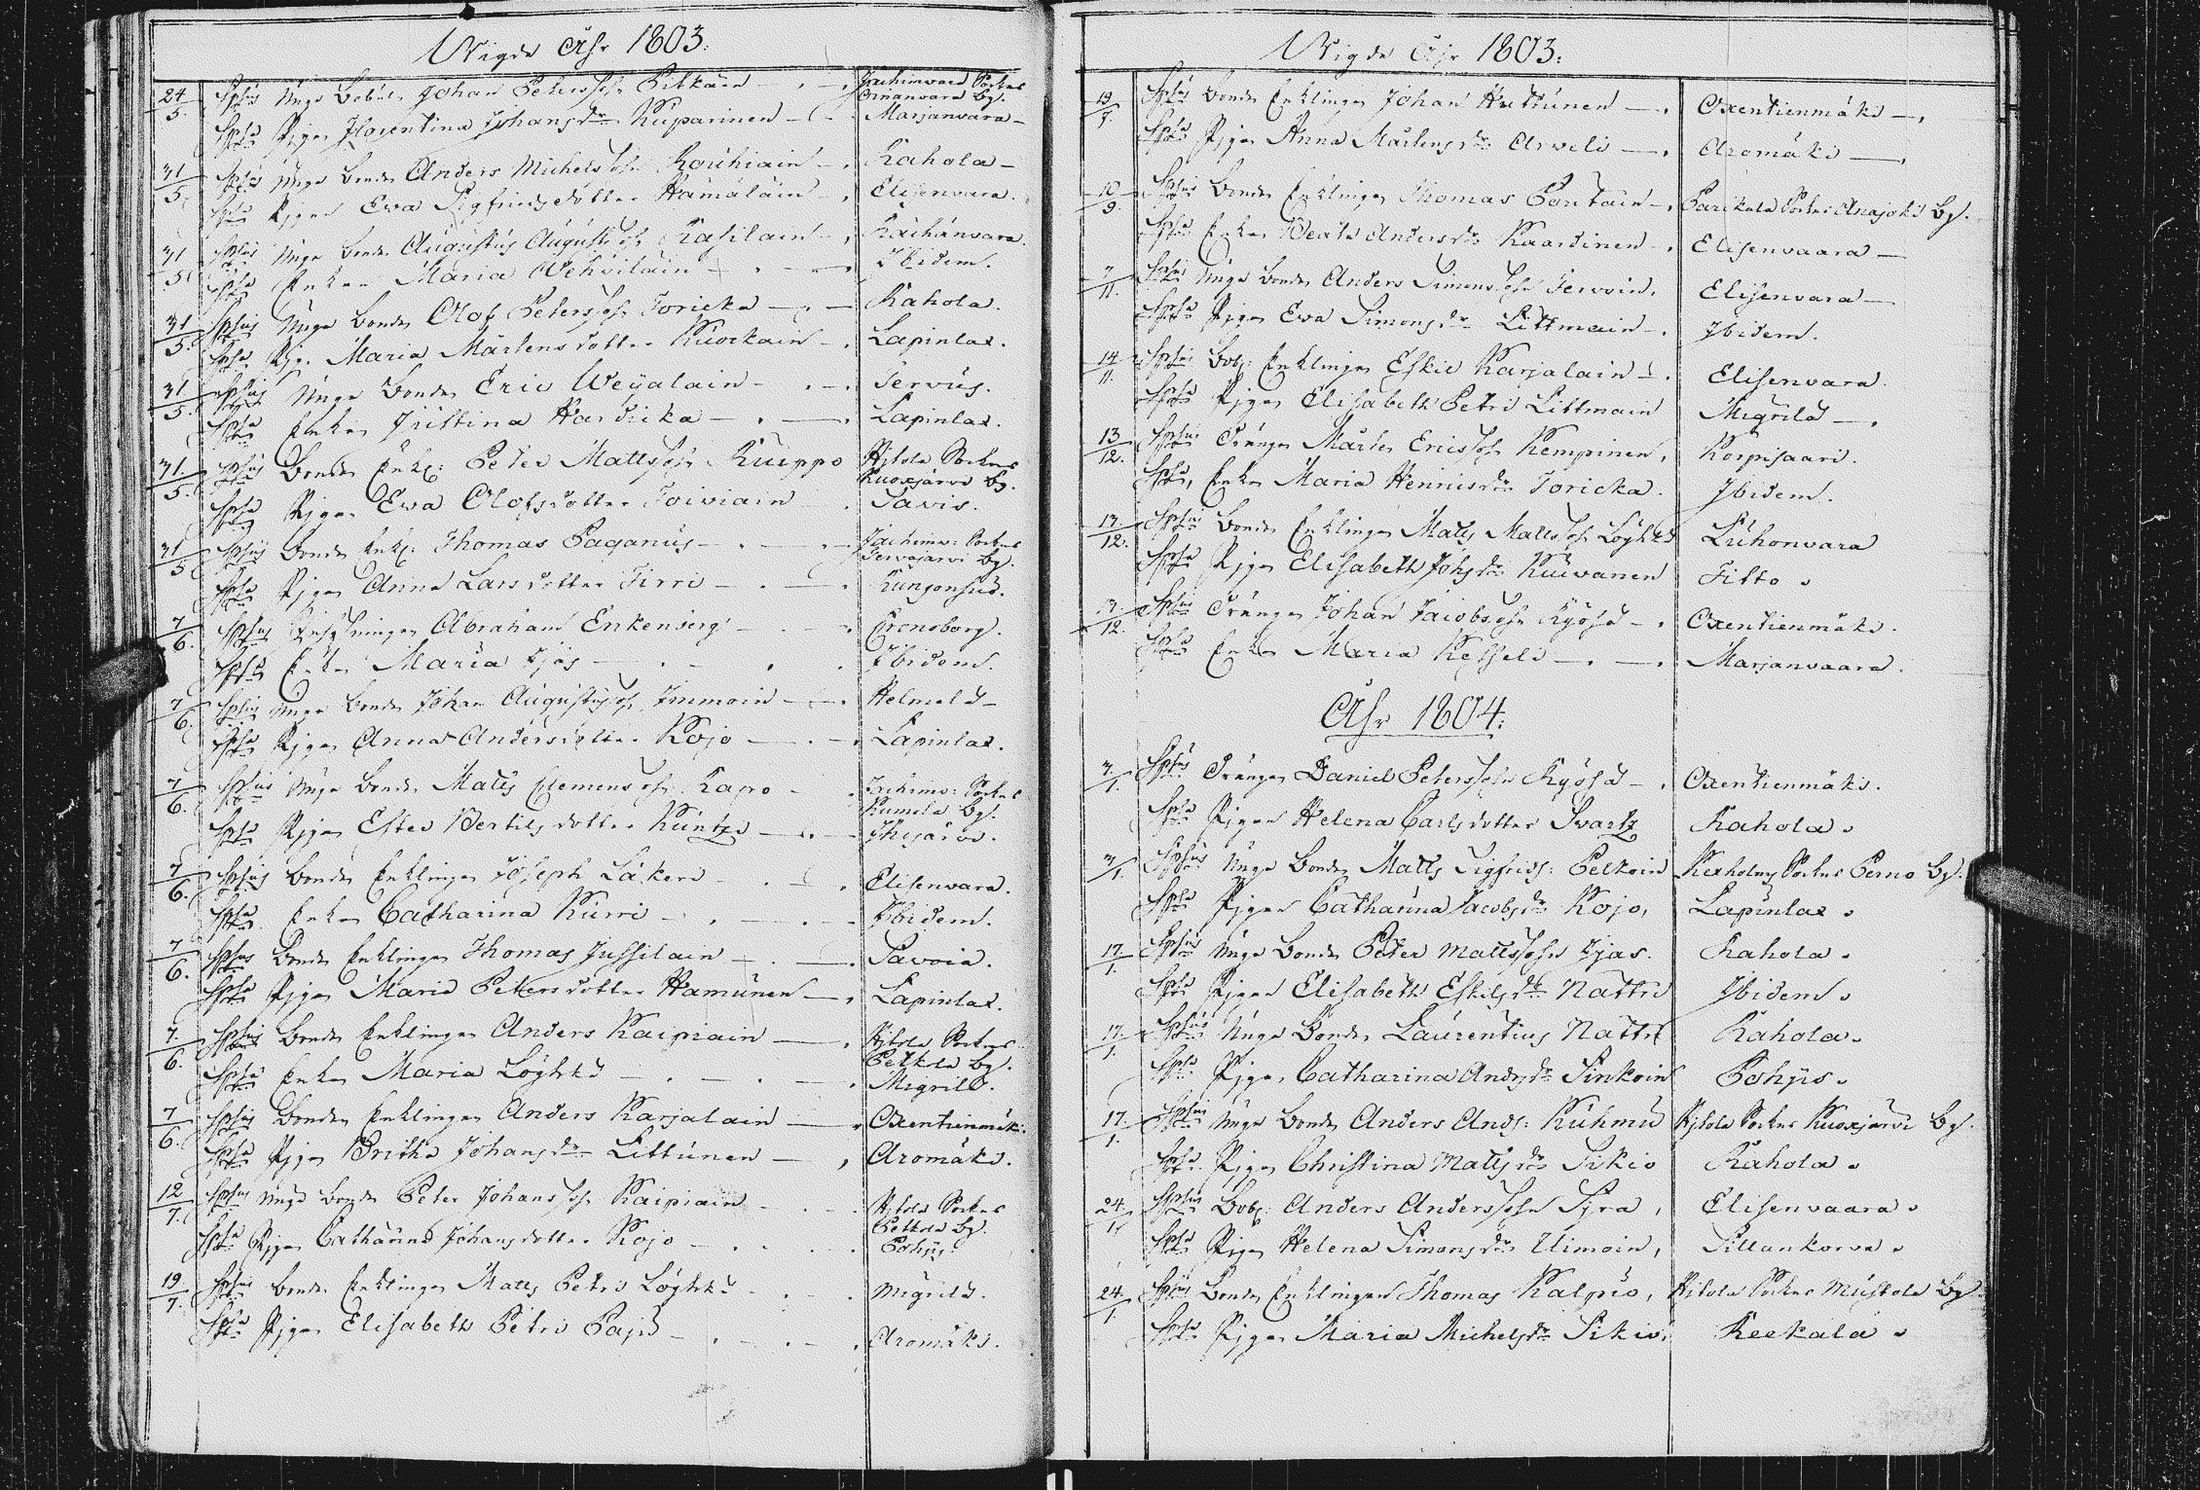 Wigde Åhr 1803:
24/5. Spsus Unge Bobln Johan Petersson Pitkäin Jachimvara Sockn
Spsa Pigan Florentina Johansdr Kuparinen Marjanvara
31/5 Spsus Unge Bonden Anders Michelsson Rouhiain Rahola
Spsa Pigan Ewa Sigfredsdotter Hämäläin Elisenvara.
31/5 Spsus Unge Bonden Augustus Augustsson Kasilain Raihänvara
Spsa Enkan Maria Wehviläin Ibidem.
31/5. Spsus Unge Bonden Olof Petersson Toricka Rahola.
Spsa Pig. Maria Mårtensdotter Kuorkain Lapinlax.
31/5. Spsus Unge Bonden Eric Weijalain Servus.
Spsa Enkan Christina Hardicka Lapinlax.
31./5. Spsus Bonden Enkl: Peter Mattsson Kuippo Hjtola Sockn
Kuoxjärvi by.
Spsa Pigan Ewa Olofsdotter Toiviain Savis.
31/5 Spsus Bonden Enkl: Thomas Paganus Jachimv: Sockn
Tervajärvi by.
Spsa Pigan Anna Larsdotter Tirri
7/6. Spsus Abraham Enkenberg Cronoborg.
Spsa Enkan Maria Ijäs Ibidem.
7/6. Spsus Unge Bonden Johan Augustusson Immoin Helmelä
Spsa Pigan Anna Andersdotter Kojo Lapinlax.
7/6. Spsus Unge Bonden Matts Clemensson Rapo Jachimv: Sockn
Kumola By.
Spsa Pigan Ester Bertilsdotter Kuntzi Ihijärvi.
7/6. Spsus Bonden Enklingen Joseph Läkeri Elisenvara.
Spsa Enkan Catharina Kurri Ibidem.
7/6. Spsus Bonden Enklingen Thomas Jussilain Savoia.
Spsa Pigan Maria Petersdotter Hamunen Lapinlax.
7./6. Spsus Bonden Enklingen Anders Kaipiain Hjtola Sockn
Petkola by.
Spsa Enkan Maria Löghkö Migrilä.
7/6. Spsus Bonden Enklingen Anders Karjalain Oxentienmäki
Spsa Pigan Britha Johansdr Littunen Aromäki.
12/7. Spsus Unge Bonden Peter Johansson Kaipiain Hjtola Sockn
Petkola by.
Spsa Pigan Catharina Johansdotter Kojo Pohjis.
19/7. Spsus Bonden Enklingen Matts Petri Löghkö Migrilä.
Spsa Pigan Elisabeth Petri Paju Aromäki.
Wigde Åhr 1803:
19/7. Spsus Bonden Enklingen Johan Huttunen Oxentienmäki
Spsa Pigan Anna Mårtensdr Arveli Aromäki
10/9. Spsus Bonden Enklingen Thomas Poutain Parikala Sockn Anajoki by.
Spsa Enkan Beata Andersdr Kaardinen Elisenvaara
7/11. Spsus Unge Bonden Anders Simonsson Tervoin, Elisenvara
Spsa Pigan Ewa Simonsdr Littmain Ibidem.
14/11. Spsus Bob: Enklingen Eskil Karjalain Elisenvara.
Spsa Pigan Elisabeth Petri Littmain Migrilä
13/12. Spsus Drängen Mårten Ericsson Kempinen, Korpisaari.
Spsa, Enkan Maria Henricsdr Toricka. Ibidem.
13/12. Spsus Bonden Enklingen Matts Mattsson Löghkö Luhonvara
Spsa Pigan Elisabeth Johsdr Kuivanen Titto.
13/12. Spsus Drängen Johan Jacobsson Kyöhä Oxentienmäki.
Spsa Enkan Maria Kesseli Marjanvaara.
Åhr 1804:
3/1. Spsus Drängen Daniel Petersson Kyöhä Oxentienmäki.
Spsa Pigan Helena Carlsdotter Svartz Rahola.
3/1. Spsus Unge Bonden Matts Sigfrids: Pelkoin Kexholms Sockn Perno by.
Spsa Pigan Catharina Jacobsdr Kojo, Lapinlax.
17./1. Spsus Unge Bonden Peter Mattsson Ijäs. Rahola.
Spsa Pigan Elisabeth Eskilsdr Nattri Ibidem.
17./1. Spsus Unge Bonden Laurentius Nattri Rahola.
Spsa Pigan Catharina Andsdr Sinkoin Pohjis.
17./1. Spsus Unge Bonden Anders Ands: Kuhmu Hjtola Sockn Kuoxjärvi By.
Spsa Pigan Christina Mattsdr Sikiö Rahola.
24./1. Spsus Bob: Anders Andersson Syra, Elisenvaara.
Spsa Pigan Helena Simonsdr Uimoin, Sillankorva.
24./1. Spsus Bonden Enklingen Thomas Kalpio, Hitola Sockn Mustola By.
Spsa Pigan Maria Michelsdr Sikiö, Reekala.